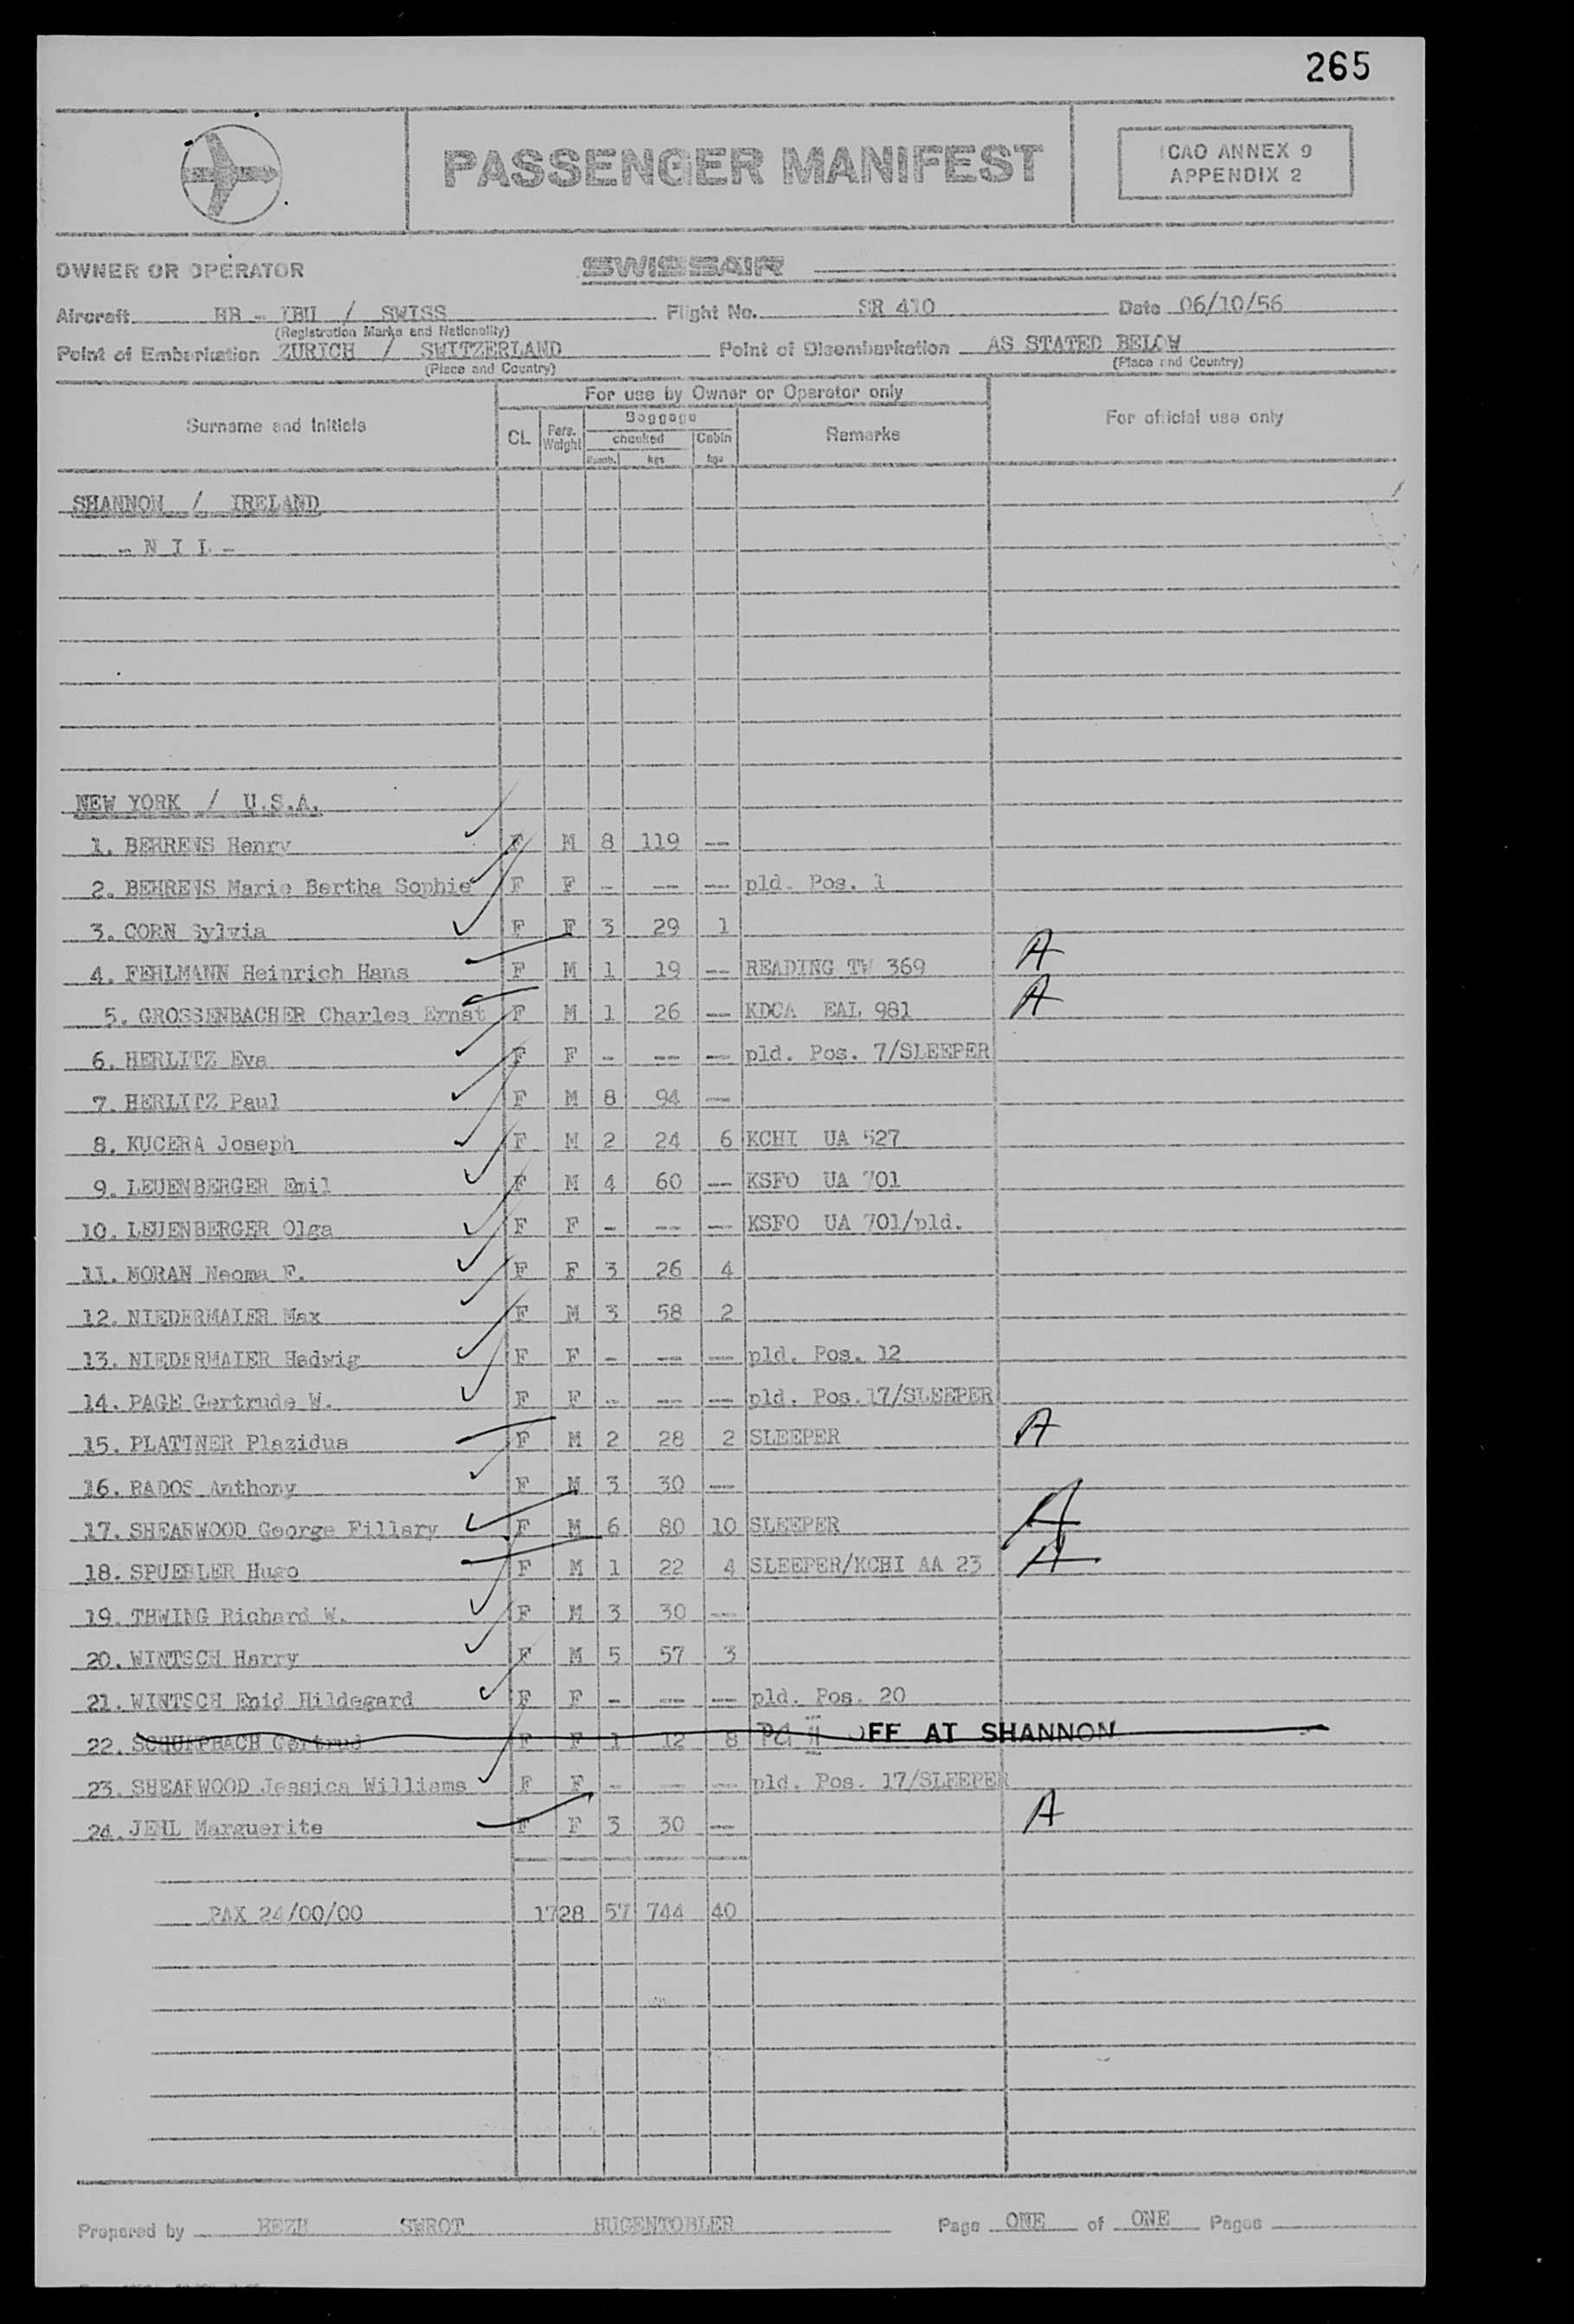 265
PASSENGER MANIFEST
ICAO ANNEX 9
APPENDIX 2
OWNER OR OPERATOR SWISSAIR
Aircraft HB - IBU / SWISS Flight No. SR 410 Date 06/10/56
(Registration Marks and Nationality)
Point of Embarkation ZURICH / SWITZERLAND Point of Disembarkation AS STATED BELOW
(Place and Country) (Place and Country)
For use by Owner or Operator only
Surname and Initials CL Pers. Weight Baggage checked Numb. kgs Cabin kgs Remarks For official use only
SHANNON / IRELAND
- N I L -
NEW YORK / U.S.A.
1. BEHRENS Henry F M 8 119 --
2. BEHRENS Marie Bertha Sophie F F - -- -- pld. Pos. 1
3. CORN Sylvia F F 3 29 1
4. FEHLMANN Heinrich Hans F M 1 19 -- READING TW 369 A
5. GROSSENBACHER Charles Ernst F M 1 26 -- KDCA EAL 981 A
6. HERLITZ Eva F F - -- -- pld. Pos. 7/SLEEPER
7. HERLITZ Paul F M 8 94 --
8. KUCERA Joseph F M 2 24 6 KCHI UA 527
9. LEUENBERGER Emil F M 4 60 -- KSFO UA 701
10. LEUENBERGER Olga F F - -- -- KSFO UA 701/pld.
11. MORAN Neoma F. F F 3 26 4
12. NIEDERMAIER Max F M 3 58 2
13. NIEDERMAIER Hedwig F F - -- -- pld. Pos. 12
14. PAGE Gertrude W. F F - -- -- pld. Pos.17/SLEEPER
15. PLATTNER Plazidus F M 2 28 2 SLEEPER A
16. RADOS Anthony F M 3 30 --
17. SHEARWOOD George Fillary F M 6 80 10 SLEEPER A
18. SPUEHLER Hugo F M 1 22 4 SLEEPER/KCHI AA 23 A
19. THWING Richard W. F M 3 30 --
20. WINTSCH Harry F M 5 57 3
21. WINTSCH Enid Hildegard F F - -- -- pld. Pos. 20
22. SCHUMPBACH Gertrud F F 1 12 8 OFF AT SHANNON
23. SHEARWOOD Jessica Williams F F - -- -- pld. Pos. 17/SLEEPER
24. JEHL Marguerite F F 3 30 -- A
PAX 24/00/00 1728 57 744 40
Prepared by HEZH SWROT HUGENTOBLER Page ONE of ONE Pages